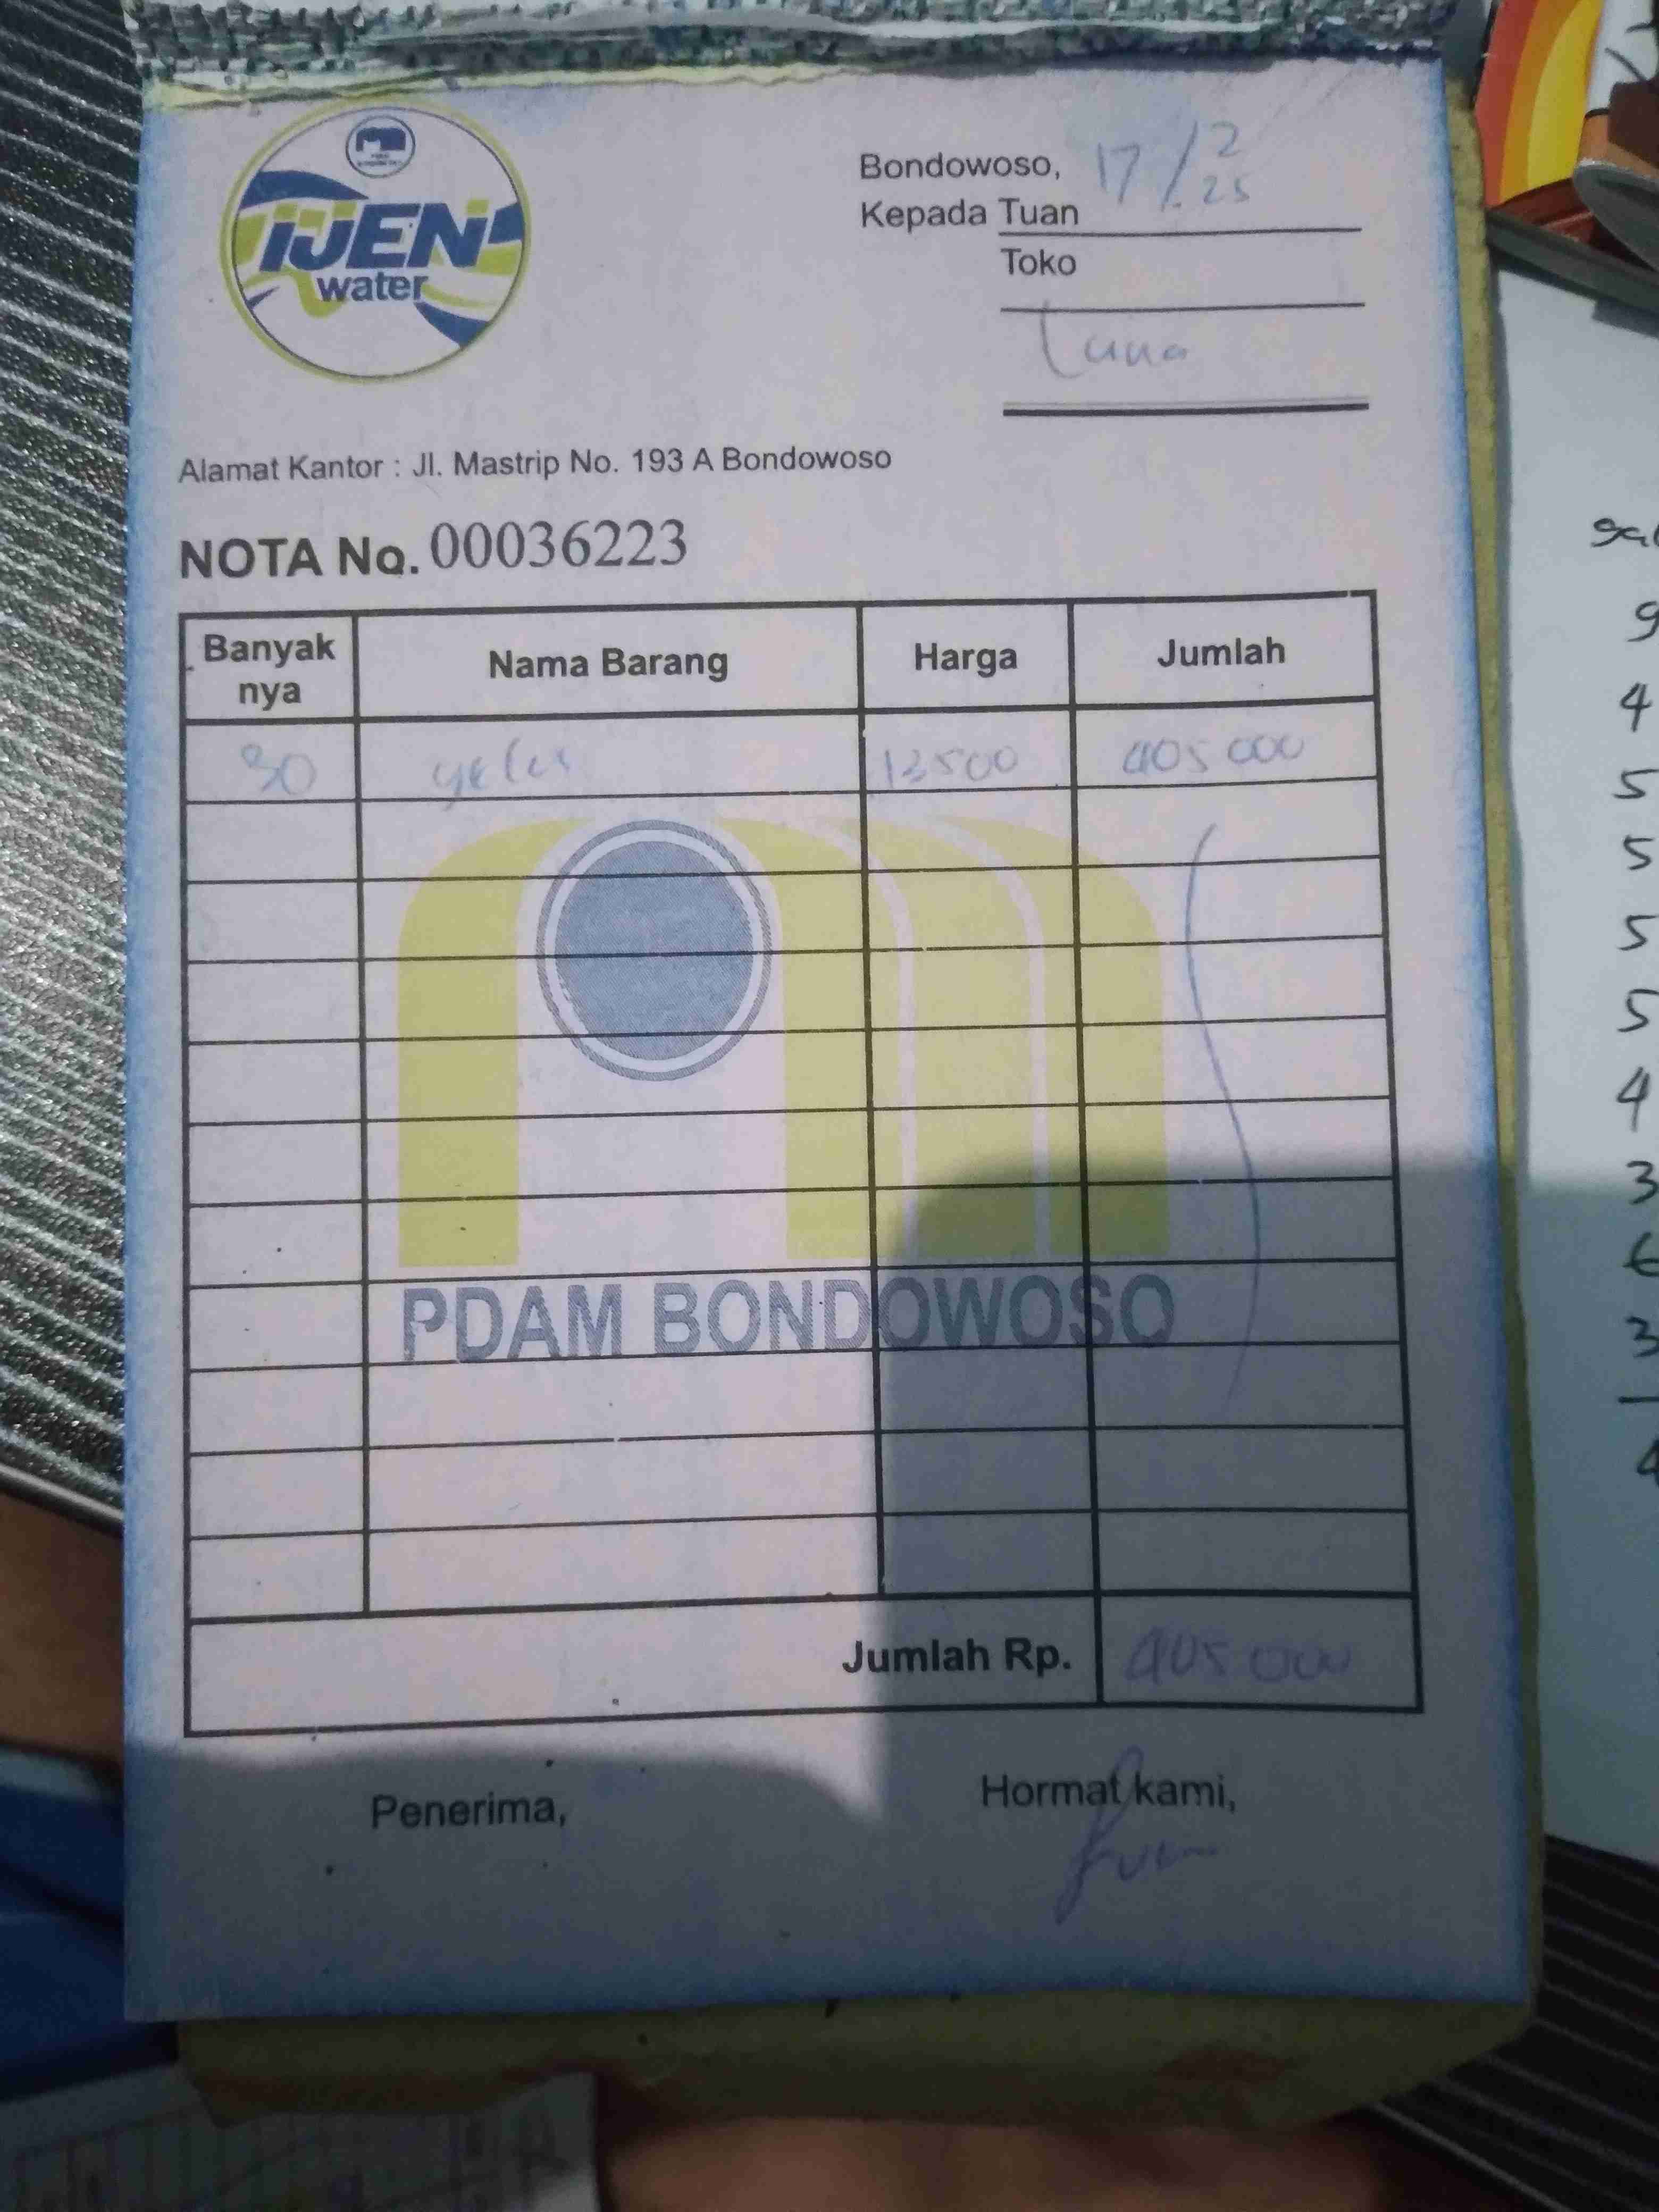 IJEN
water
Bondowoso, 17/2 25
Kepada Tuan
Toko
Luna
Alamat Kantor : Jl. Mastrip No. 193 A Bondowoso
NOTA No. 00036223
Banyak nya Nama Barang Harga Jumlah
30 gelas 13500 405 000
PDAM BONDOWOSO
Jumlah Rp. 405 000
Penerima, Hormat kami,
9
4
5
5
5
5
4
3
6
3